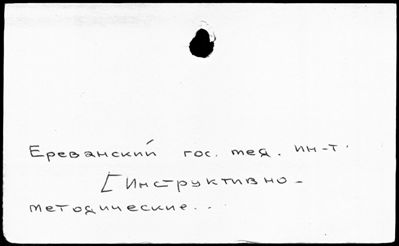 Ереванский гос. мед. ин-т.
[Инструктивно-
методические...